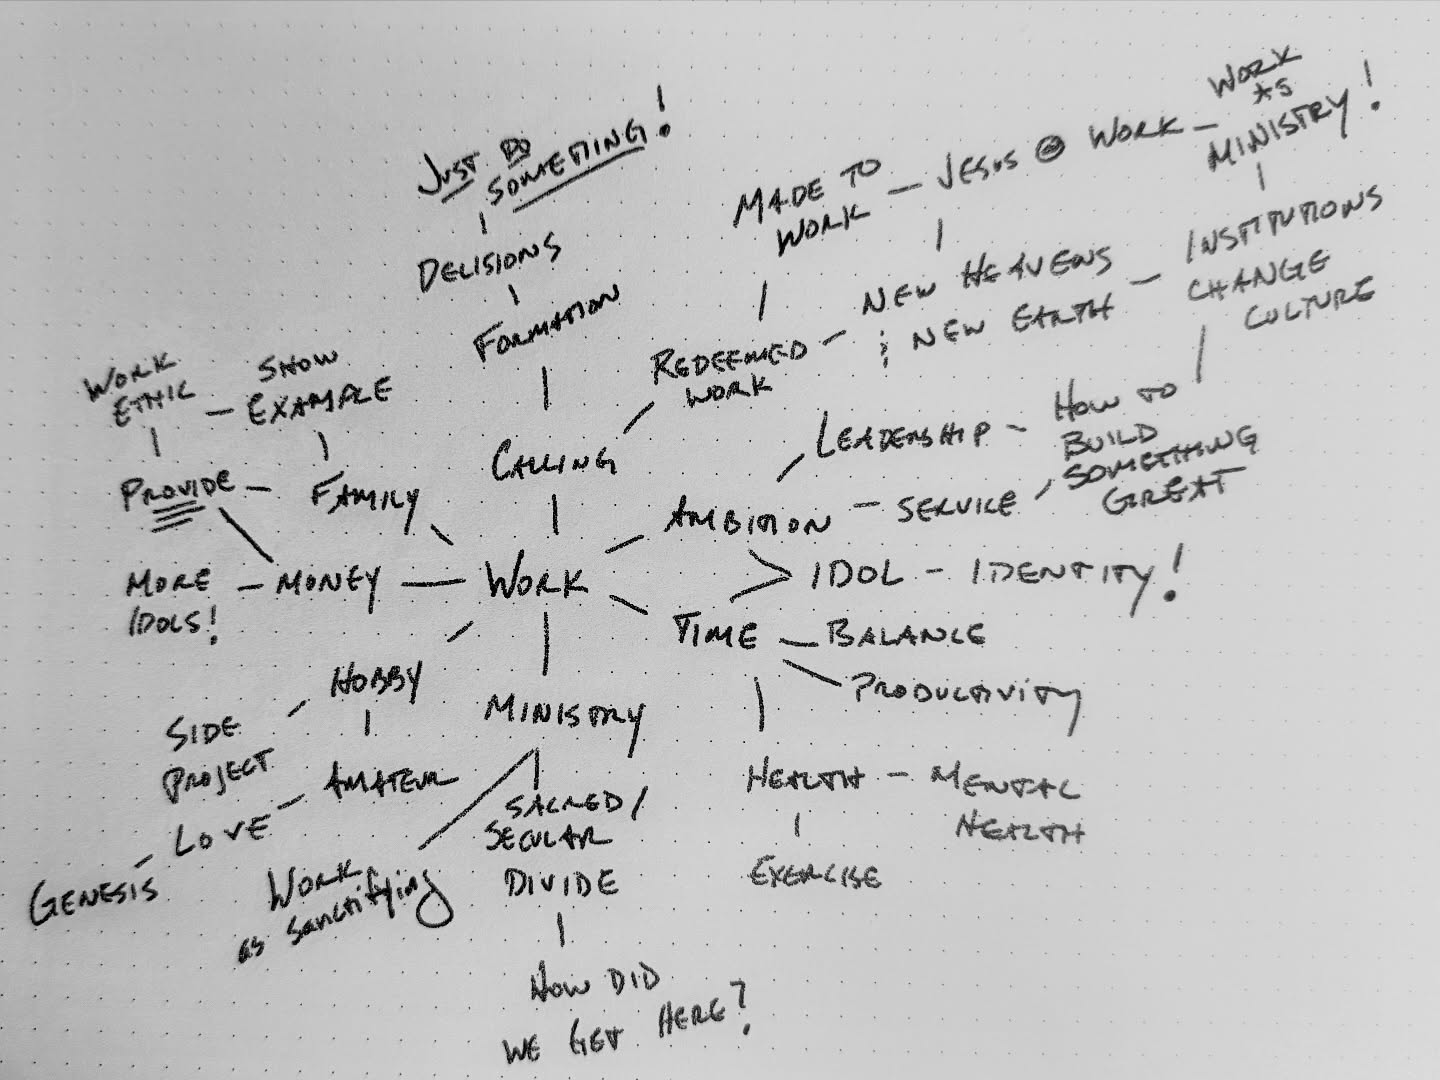 JUST DO
SOMETHING!
DECISIONS
FORMATION
CALLING
WORK
AS
MINISTRY!
JESUS @ WORK
MADE TO
WORK
NEW HEAVENS
& NEW EARTH
INSTITUTIONS
CHANGE
CULTURE
REDEEMED
WORK
WORK
ETHIC
SHOW
EXAMPLE
PROVIDE
FAMILY
MORE
IDOLS!
MONEY
WORK
AMBITION
LEADERSHIP
SERVICE
HOW TO
BUILD
SOMETHING
GREAT
IDOL
IDENTITY!
TIME
BALANCE
PRODUCTIVITY
HEALTH
MENTAL
HEALTH
EXERCISE
HOBBY
SIDE
PROJECT
AMATEUR
LOVE
GENESIS
MINISTRY
WORK
as Sanctifying
SACRED/
SECULAR
DIVIDE
HOW DID
WE GET HERE?